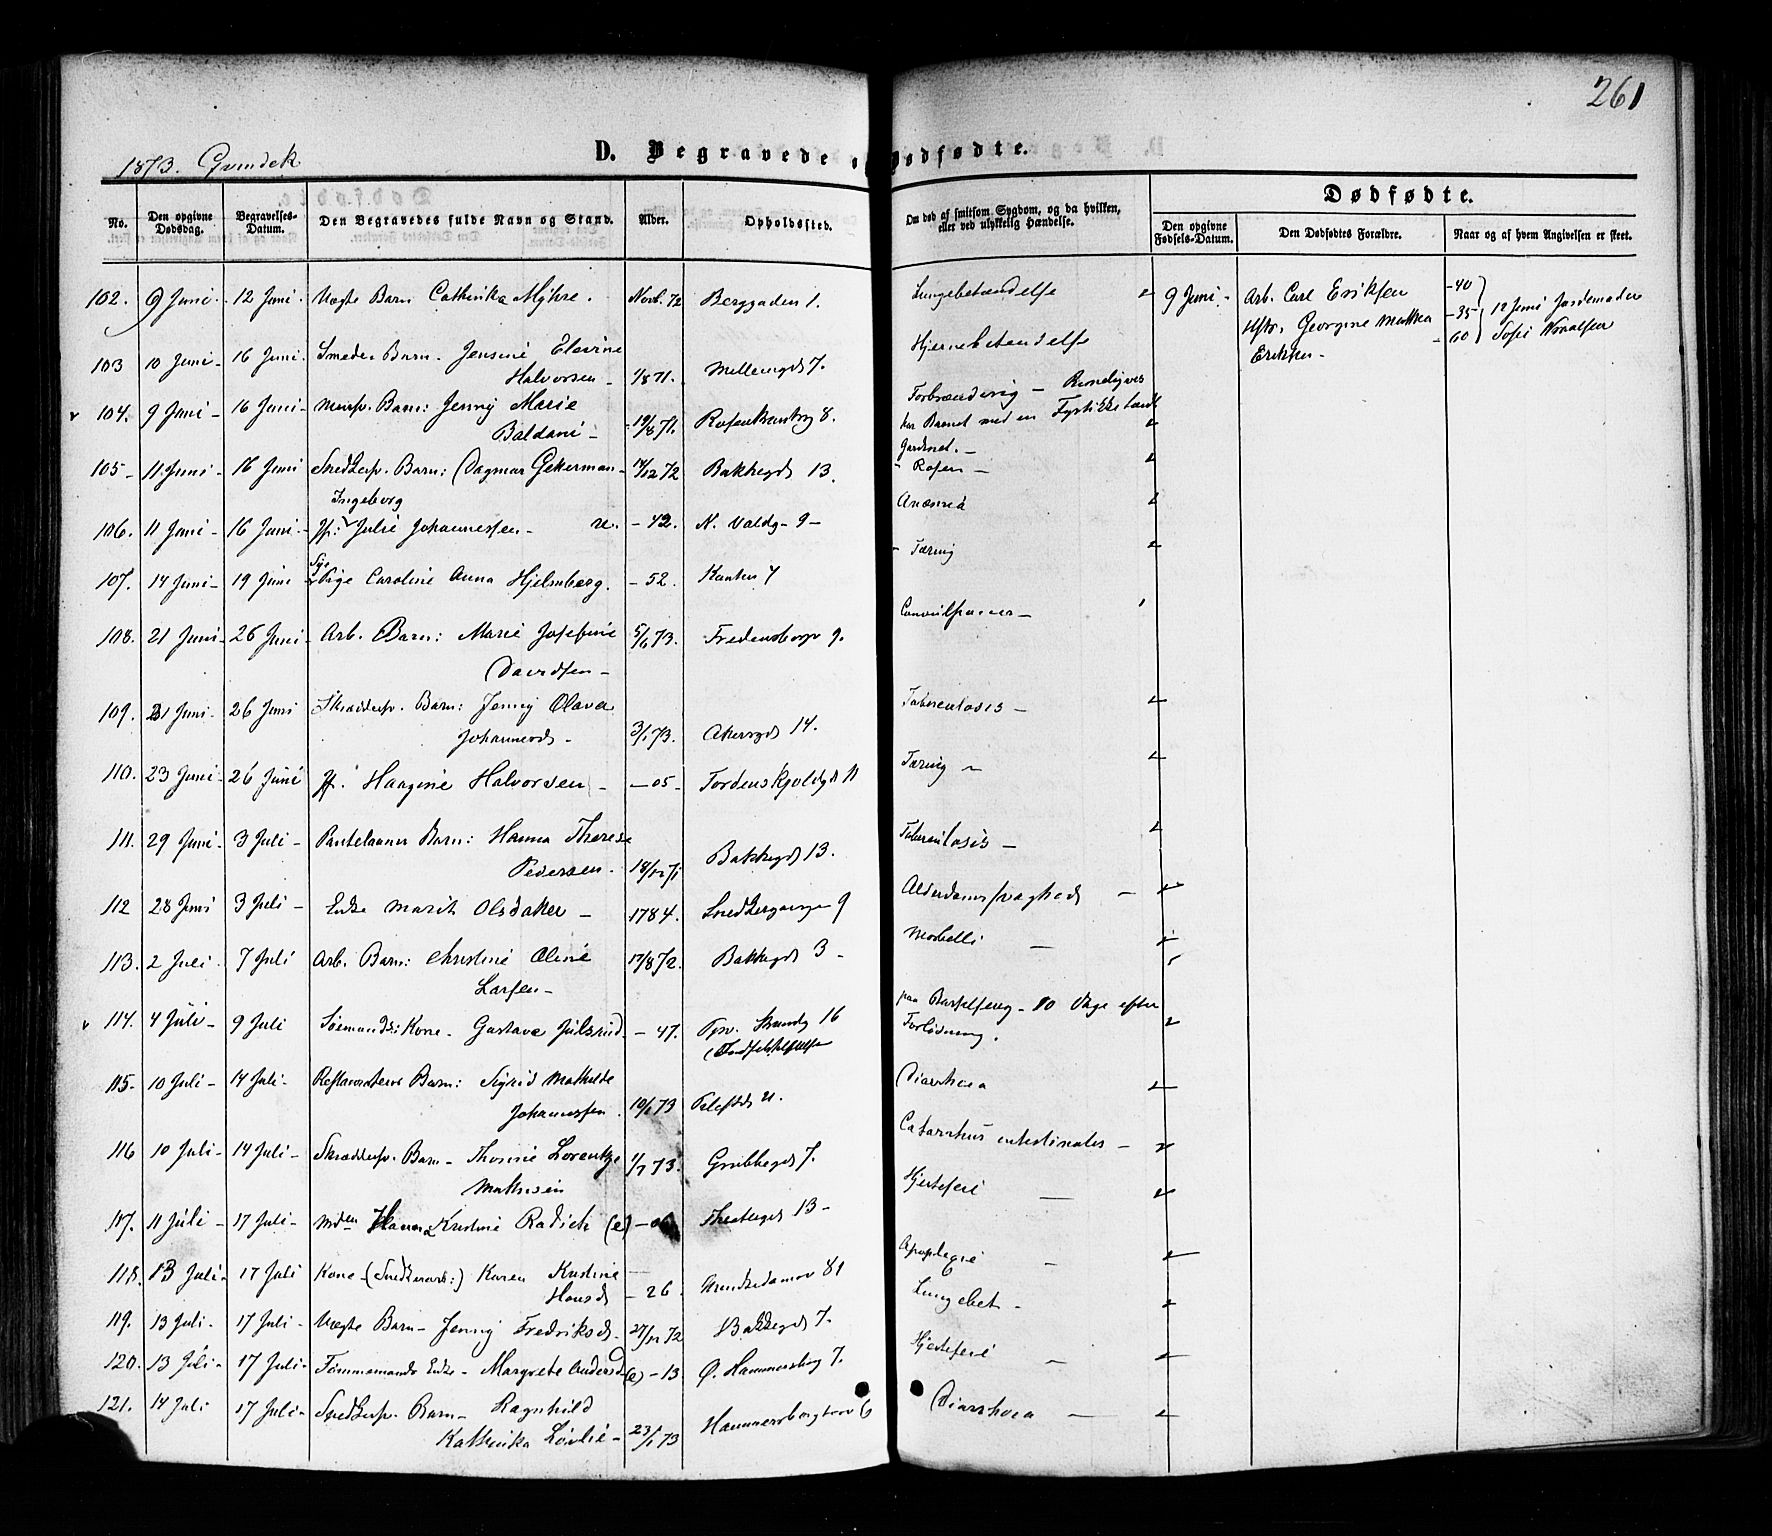 261
1873. Qvindek
D. Begravede o Dødfødte.
Dødfødte.
No. Den opgivne Dødsdag. Begravelses-Datum. Den Begravedes fulde Navn og Stand. Alder. Opholdssted. Om død af smitsom Sygdom, og da hvilken, eller ved ulykkelig Hændelse. Den opgivne Fødsels-Datum. Den Dødfødtes Forældre. Naar og af hvem Angivelsen er skeet.
102. 9 Juni 12 Juni Uægte Barn Cathinka Myhre. Novb. 72 Berggaden 1. Lungebetændelse 9 Juni Arb. Carl Eriksen -40
Hstr. Georgine Mathea -35 12 Juni Jordemoder
Eriksen 60
103 10 Juni 16 Juni Smeder Barn Jensine Elevine
Halvorsen 1/8 71. Møllergd 7. Hjernebetændelse
104. 9 Juni 16 Juni Barn: Jenny Marie
Baldani 19/8 71. 8. Forbrænding
har Barnet med en
105 11 Juni 16 Juni Snedkersv. Barn: Dagmar Gekerman 14/12 72 Bakkegd 13. Rosen
Ingeborg
106. 11 Juni 16 Juni Julie Johannessen - 42. N. Voldg 9 Anæmia
107. 14 Juni 19 Juni Pige Caroline Anna Hjelmberg. - 52. Tæring
108. 21 Juni 26 Juni Arb. Barn: Marie Josefine 5/6 73. Fredensborgv 9. Convulsioner
Davidsen
109. 21 Juni 26 Juni Skræddersv. Barn: Jenny Olava
Johannesd 3/1 73. Akersgd 14. Tuberculosis
110. 23 Juni 26 Juni Haagine Halvorsen - 05 Tordenskjoldgd 11 Tæring
111. 29 Juni 3 Juli Pantelaaner Barn: Hanna Therese
Pedersen. 18/12 71 Bakkegd 13. Tuberculosis
112 28 Juni 3 Juli Enke Marit Olsdaker 1784. Snedkergangen 9 Alderdomssvaghed
113. 2 Juli 7 Juli Arb. Barn: Christine Oline 17/8 72. Bakkegd 3 Morbilli
Larsen
114. 4 Juli 9 Juli Sømands Kone Gustava Julsrud - 47. 16 paa Barselseng 10 Dage efter
(Fødselsstiftelsen Forløsning.
115. 10 Juli 14 Juli Barn: Sigrid Mathilde
Johannessen 10/1 73 Pilestd 21. Diarrhoea
116 10 Juli 14 Juli Skræddersv. Barn Thomine Lorentze 1/7 73. Grubbegd 7. Catarrhus intestinales
Mathisen
117. 11 Juli 17 Juli Hanna Kristine Radich (e) Theatergd 13 Hjertefeil
118. 13 Juli 17 Juli Kone (Snedkerarb:) Karen Kristine
Hansd - 26. Munkedamsv 81 Apoplexie
119. 13 Juli 17 Juli Uægte Barn Jenny Fredriksd 27/12 72 Bakkegd 7. Lungebet
120. 13 Juli 17 Juli Tømmermands Enke Margrete Andersd (e) - 13 Ø. Hammersborg 7. Hjertefeil
121. 14 Juli 17 Juli Snedkersv. Barn Ragnhild
Kathinka Løvlie 23/1 73 Hammersborgtorv 6 Diarrhoea